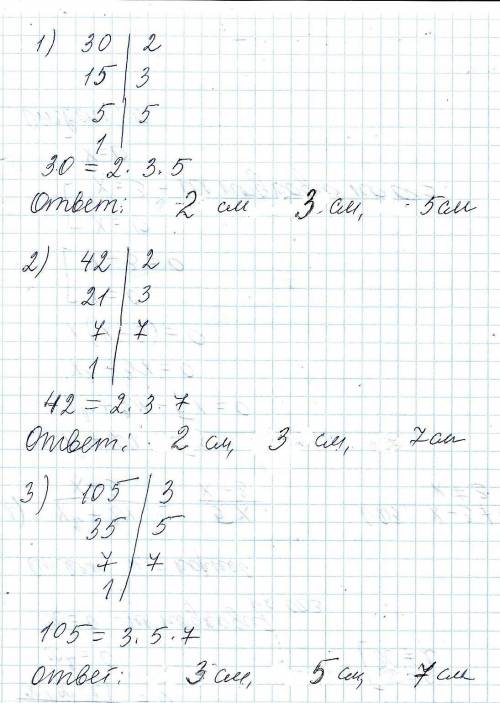 1) 30 | 2
15 | 3
5 | 5
1 |
30 = 2 · 3 · 5
Ответ: 2 см 3 см, 5 см
2) 42 | 2
21 | 3
7 | 7
1 |
42 = 2 · 3 · 7
Ответ: 2 см, 3 см, 7 см
3) 105 | 3
35 | 5
7 | 7
1 |
105 = 3 · 5 · 7
ответ: 3 см, 5 см, 7 см